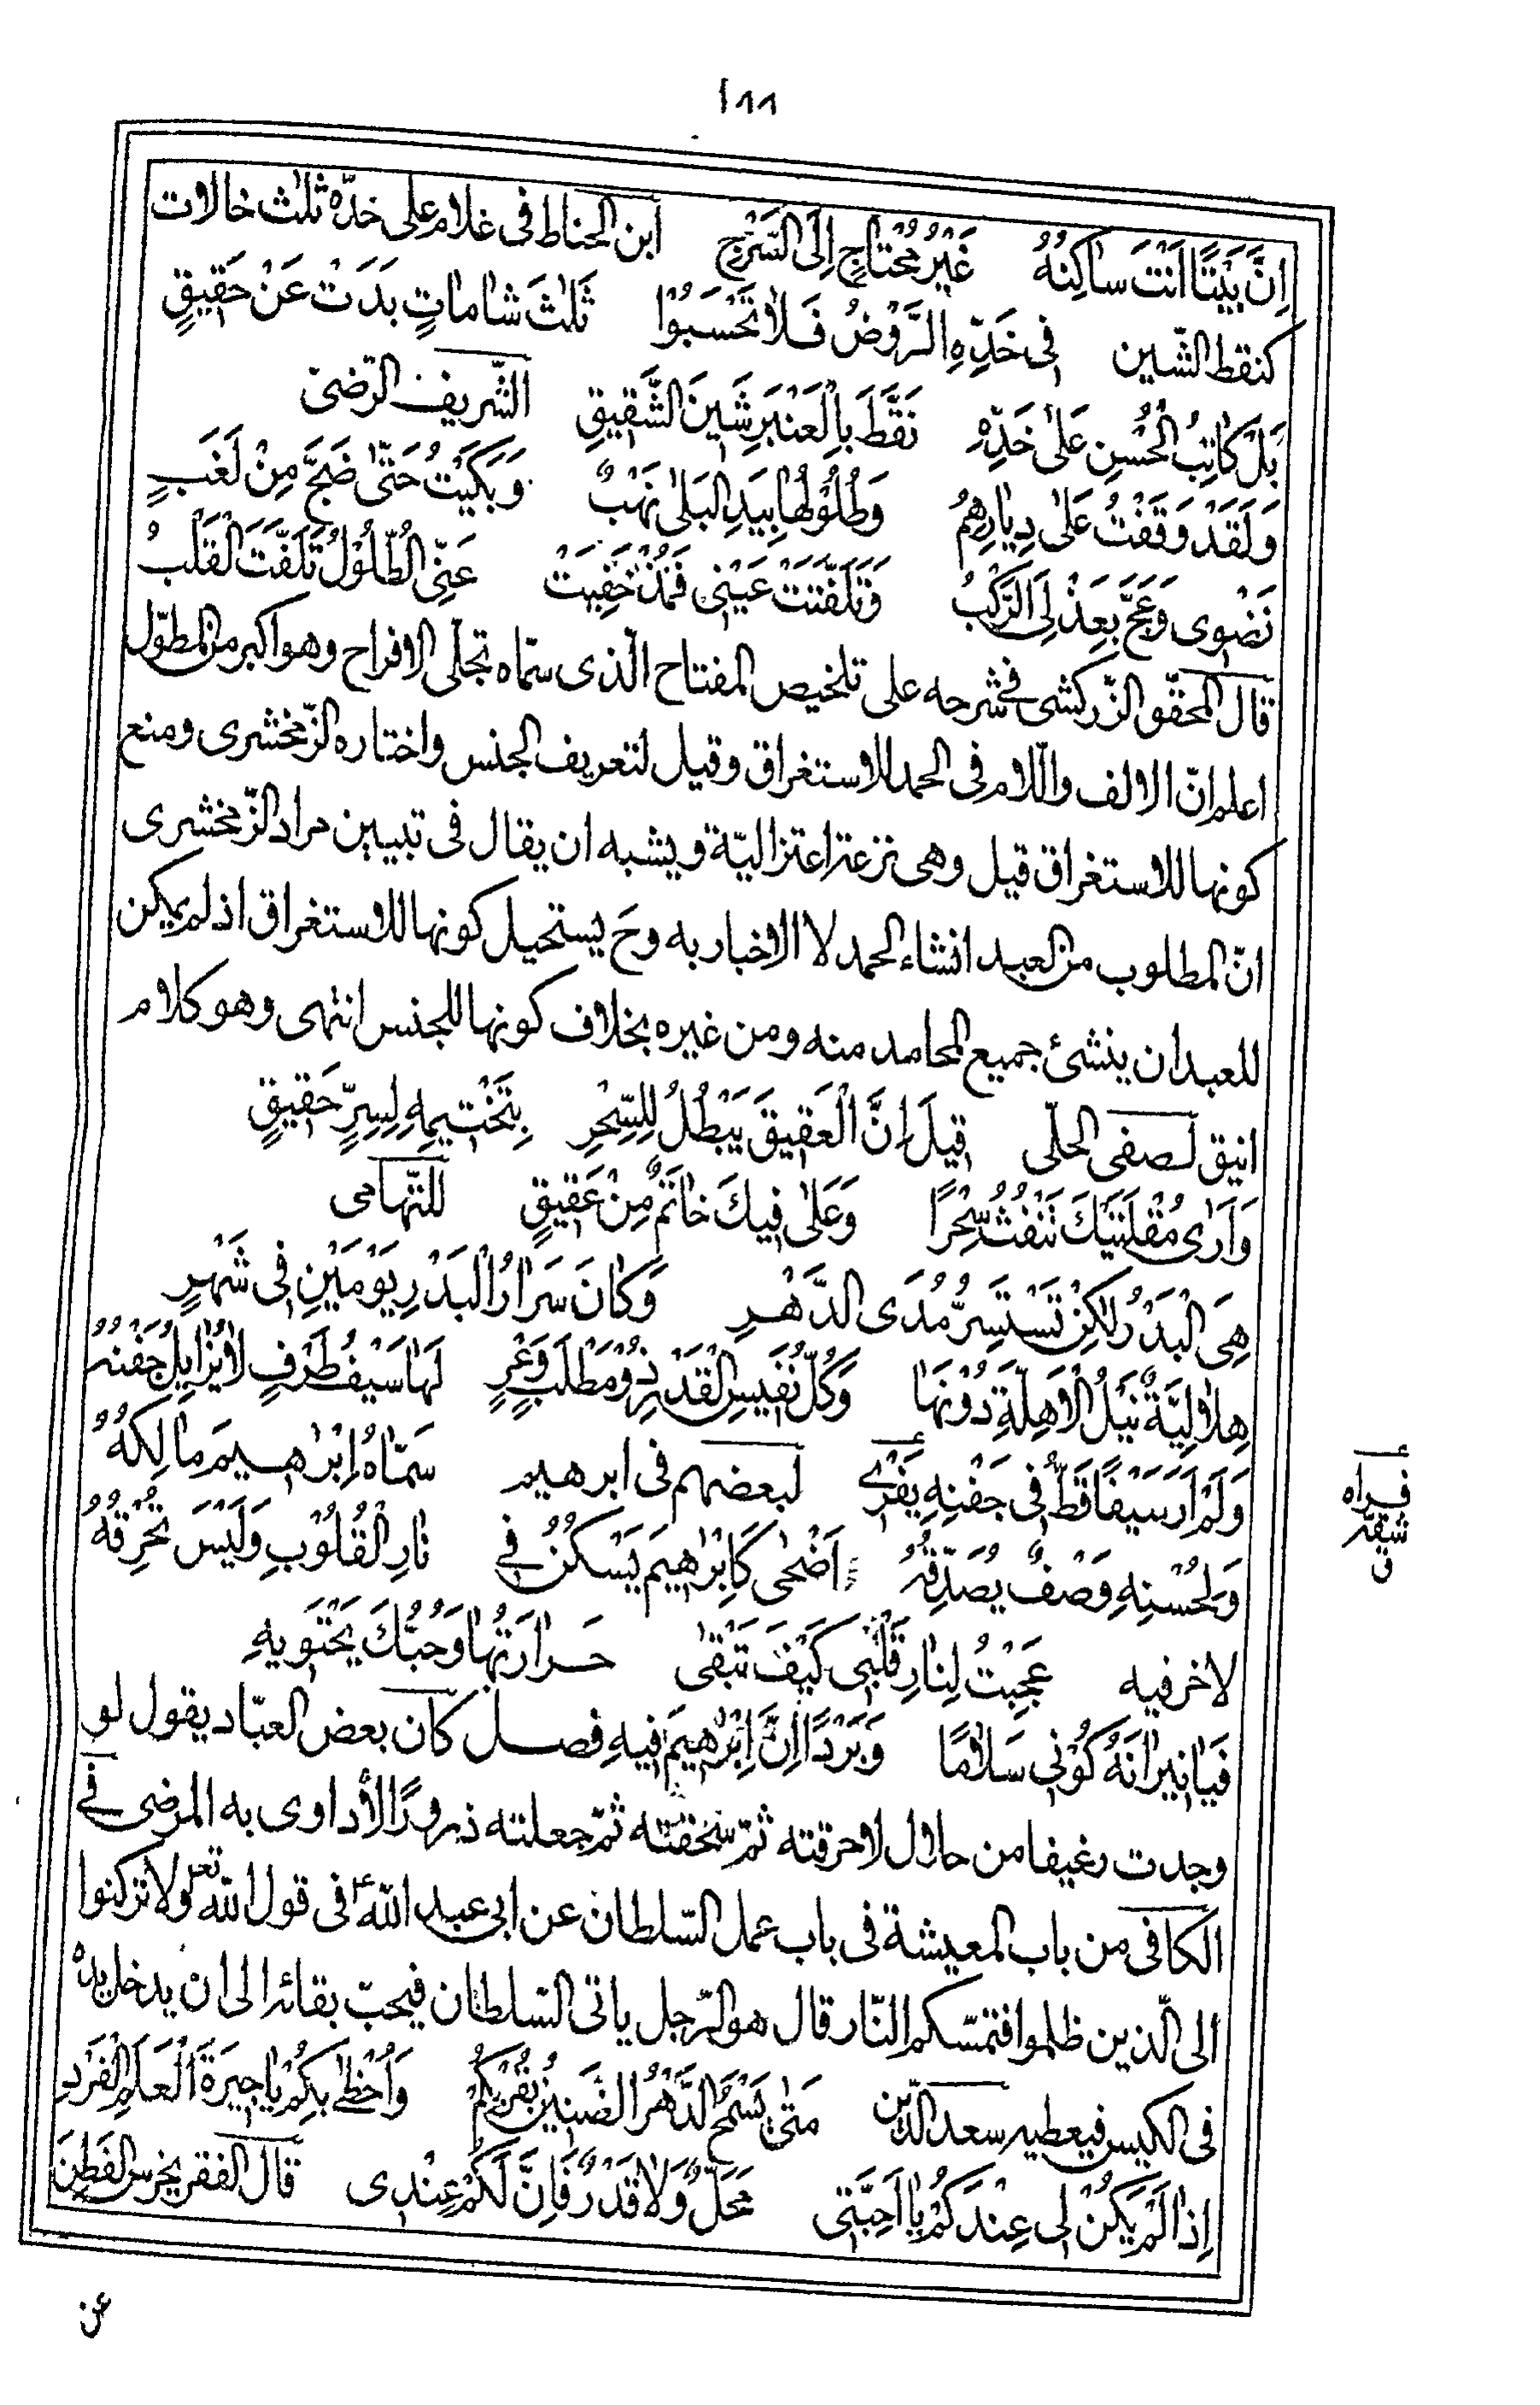 ١٨٨
اِنَّ بَيْتًا اَنْتَ سٰاكِنُهُ غَيْرُ مُحْتٰاجٍ اِلَى السُّرُجِ ابن الحناط فى غلام على خدّه ثلٰث خالات
كنقط الشّين فى خَدِّهِ الرَّوْضُ فَلٰا تَحْسَبُوْا ثَلٰثَ شٰامٰاتٍ بَدَتْ عَنْ حَقِيقٍ
بَلْ كٰاتِبُ الْحُسْنِ عَلىٰ خَدِّهِ نَقَّطَ بِالْعَنْبَرِ شَينَ الشَّقِيقِ الشّريف الرّضى
وَلَقَدْ وَقَفْتُ عَلىٰ دِيٰارِهِمُ وَطُلُوْلُهٰا بِيَدِ الْبَلىٰ نَهْبٌ وَبَكَيْتُ حَتّىٰ ضَجَّ مِنْ لَغَبٍ
نَضْوِى وَعَجَّ بِعَذْلِىَ الرَّكْبُ وَتَلَفَّتَتْ عَيْنِى فَمُذْ خَفِيَتْ عَنِّى الطُّلُوْلُ تَلَفَّتَ الْقَلْبُ
قال المحقّق الزّركشى فى شرحه على تلخيص المفتاح الّذى سمّاه تجلّى الافراح وهو اكبر من المطوّل
اعلم انّ الالف واللّام فى الحمد للاستغراق وقيل لتعريف الجنس واختاره الزّمخشرى ومنع
كونها للاستغراق قيل وهى نزعة اعتزاليّة ويشبه ان يقال فى تبيين مراد الزّمخشرى
انّ المطلوب من العبد انشاء الحمد لا الاخبار به وحَ يستحيل كونها للاستغراق اذ لم يمكن
للعبد ان ينشئ جميع المحامد منه ومن غيره بخلاف كونها للجنس انتهى وهو كلام
انيق لصفى الحلّى قِيلَ اِنَّ الْعَقِيقَ يَبْطُلُ لِلسِّحْرِ بِتَخْتِيمِهِ لِسِرٍّ حَقِيقٍ
وَاَرٰى مُقْلَتَيْكَ تَنْفُثُ سِحْرًا وَعَلىٰ فِيكَ خٰاتَمٌ مِنْ عَقِيقٍ للتّهامى
هِىَ الْبَدْرُ لٰكِنْ تَسْتَسِرُّ مُدَى الدَّهْرِ وَكٰانَ سَرٰارُ الْبَدْرِ يَوْمَيْنِ فِى شَهْرٍ
هِلٰالِيَّةٌ نَيْلُ الْاَهِلَّةِ دُوْنَهٰا وَكُلُّ نَفِيسِ الْقَدْرِ ذُوْ مَطْلَبٍ وَعْرٍ لَهٰا سَيْفُ طَرْفٍ لٰا يُزٰايِلُ جَفْنَهُ
وَلَمْ اَرَ سَيْفًا قَطُّ فِى جَفْنِهِ يَفْرِى لبعضهم فى ابرهيم سَمّٰاهُ اِبْرٰهيمَ مٰالِكُهُ
فراه شقّه ق
وَلِحُسْنِهِ وَصْفٌ يُصَدِّقُهُ اَضْحٰى كَاِبْرٰهِيمَ يَسْكُنُ فِى نٰارِ الْقُلُوْبِ وَلَيْسَ تُحْرِقُهُ
لاخر فيه عَجِبْتُ لِنٰارِ قَلْبِى كَيْفَ تَبْقىٰ حَرٰارَتُهٰا وَحُبُّكَ يَحْتَوِيهِ
فَيٰا نِيرٰانَهُ كُوْنِى سَلٰامًا وَبَرْدًا اِنَّ اِبْرٰهِيمَ فِيهِ فصل كان بعض العبّاد يقول لو
وجدت رغيفا من حلال لاحرقته ثمّ سحقته ثمّ جعلته ذرورًا لأداوى به المرضى فى
الكافى من باب المعيشة فى باب عمل السّلطان عن ابى عبد اللّه ع فى قول اللّه تعر ولا تركنوا
الى الّذين ظلموا فتمسّكم النّار قال هو الرّجل ياتى السّلطان فيحبّ بقائه الى ان يدخل يده
فى الكيس فيعطيه سعد الدّين مَتىٰ يَسْمَحُ الدَّهْرُ الضَّنِينُ بِقُرْبِكُمْ وَاُحْظىٰ بِكُمْ يٰا جِيرَةَ الْعَلَمِ الْفَرْدِ
اِذٰا لَمْ يَكُنْ لِى عِنْدَكُمْ يٰا اَحِبَّتِى مَحَلٌّ وَلٰا قَدْرٌ فَاِنَّ لَكُمْ عِنْدِى قال الفقر يخرس الفَطِنَ
عن